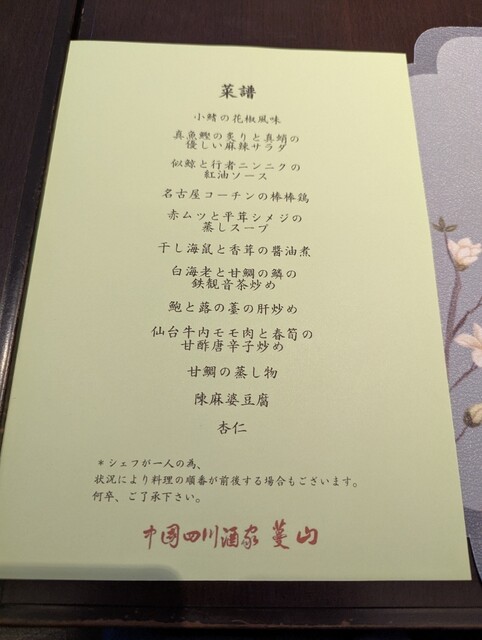 菜譜
小鰭の花椒風味
真魚鰹の炙りと真蛸の
優しい麻辣サラダ
似鯨と行者ニンニクの
紅油ソース
名古屋コーチンの棒棒鶏
赤ムツと平茸シメジの
蒸しスープ
干し海鼠と香茸の醬油煮
白海老と甘鯛の鱗の
鉄観音茶炒め
鮑と蕗の薹の肝炒め
仙台牛内モモ肉と春筍の
甘酢唐辛子炒め
甘鯛の蒸し物
陳麻婆豆腐
杏仁
＊シェフが一人の為、
状況により料理の順番が前後する場合もございます。
何卒、ご了承下さい。
中国四川酒家 蔓山